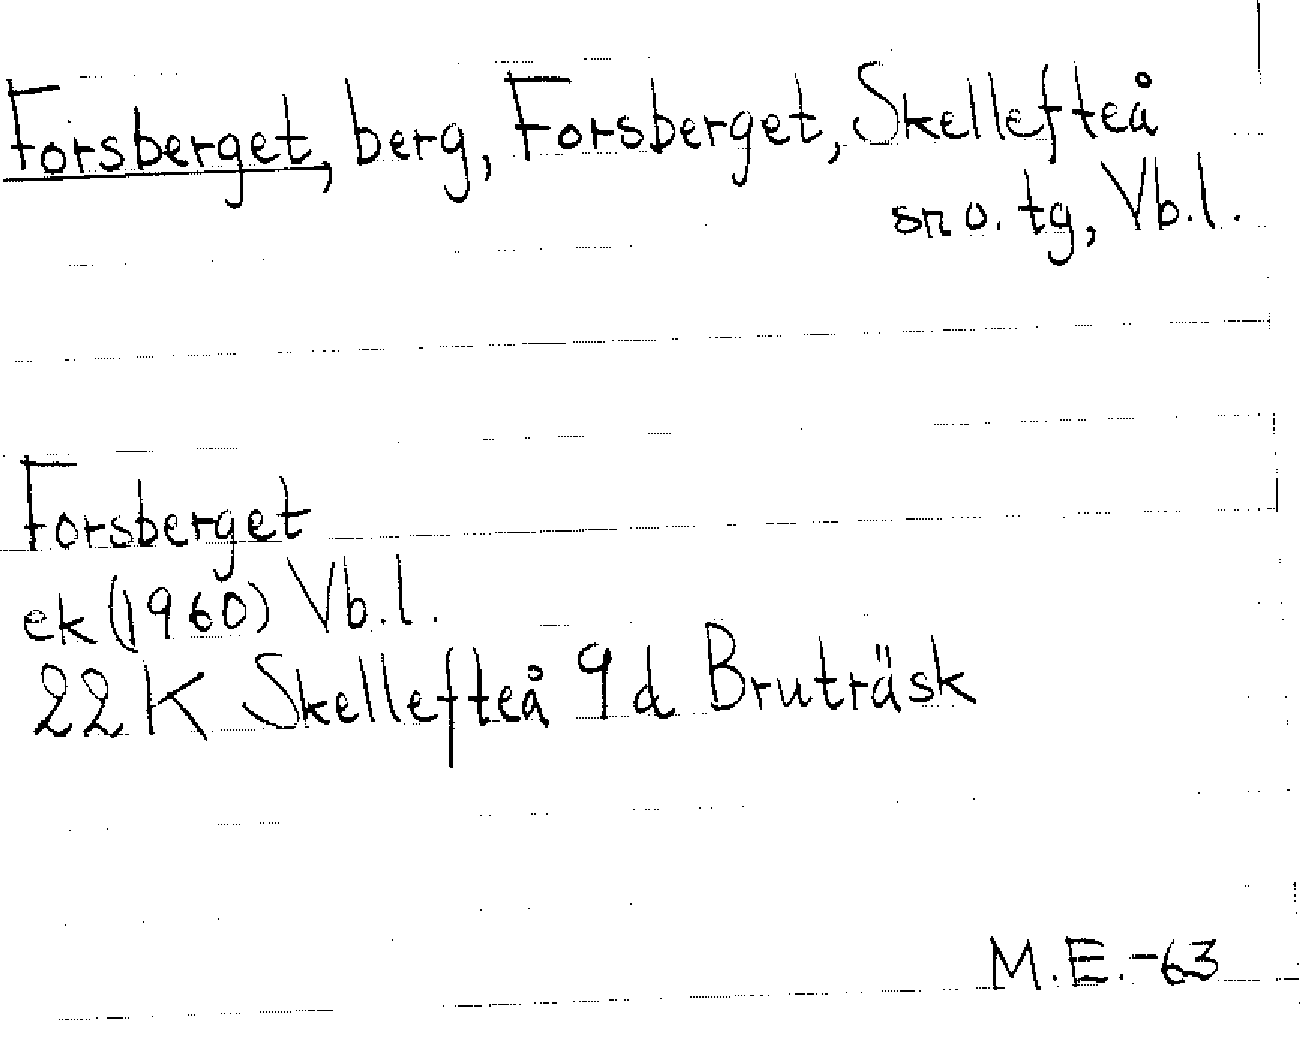 Forsberget, berg, Forsberget, Skellefteå
sn o. tg, Vb.l.
Forsberget
ek (1960) Vb.l.
22K Skellefteå 9d Bruträsk
M.E.-63